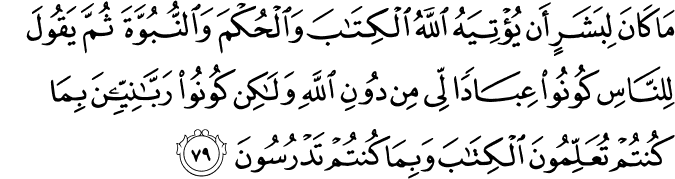 مَا كَانَ لِبَشَرٍ أَن يُؤْتِيَهُ ٱللَّهُ ٱلْكِتَٰبَ وَٱلْحُكْمَ وَٱلنُّبُوَّةَ ثُمَّ يَقُولَ
لِلنَّاسِ كُونُوا۟ عِبَادًا لِّى مِن دُونِ ٱللَّهِ وَلَٰكِن كُونُوا۟ رَبَّٰنِيِّۦنَ بِمَا
كُنتُمْ تُعَلِّمُونَ ٱلْكِتَٰبَ وَبِمَا كُنتُمْ تَدْرُسُونَ ٧٩